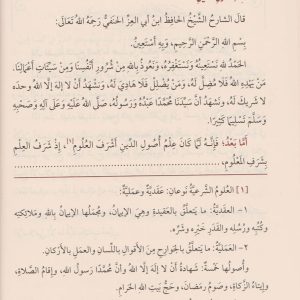 قَالَ الشَّارِحُ الشَّيْخُ الحَافِظُ ابنُ أَبِي العِزِّ الحَنَفِيُّ رَحِمَهُ اللهُ تَعَالَى:
بِسْمِ اللهِ الرَّحْمَنِ الرَّحِيمِ، وَبِهِ أَسْتَعِينُ.
الحَمْدُ للهِ نَسْتَعِينُهُ وَنَسْتَغْفِرُهُ، وَنَعُوذُ بِاللهِ مِنْ شُرُورِ أَنْفُسِنَا وَمِنْ سَيِّئَاتِ أَعْمَالِنَا.
مَنْ يَهْدِهِ اللهُ فَلَا مُضِلَّ لَهُ، وَمَنْ يُضْلِلْ فَلَا هَادِيَ لَهُ، وَنَشْهَدُ أَنْ لَا إِلَهَ إِلَّا اللهُ وَحدَه
لَا شَرِيكَ لَهُ، ونَشهَدُ أَنَّ سَيِّدَنَا مُحَمَّدًا عَبْدُهُ وَرَسُولُهُ، صَلَّى اللهُ عَلَيْهِ وَعَلَى آلِهِ وَصَحْبِهِ
وَسَلَّمَ تَسْلِيمًا كَثِيرًا.
أَمَّا بَعْدُ؛ فَإِنَّهُ لَمَّا كَانَ عِلْمُ أُصُولِ الدِّينِ أَشْرَفَ العُلُومِ[١]، إِذْ شَرَفُ العِلْمِ
بِشَرَفِ المَعْلُومِ، ............
[١] العُلُومُ الشَّرْعِيَّةُ نَوعانِ: عَقَدِيَّةٌ وعَمَلِيَّةٌ:
١- العَقَدِيَّةُ: ما يَتعلَّقُ بالعَقِيدةِ وهِيَ الإيمانُ، ومُجمَلُها الإيمانُ باللهِ ومَلائكتِه
وكُتُبِه ورُسُلِه والقَدَرِ خَيرِه وشَرِّه.
٢- العَمَلِيَّةُ: ما يَتعلَّقُ بالجَوارِحِ مِنَ الأَقوالِ باللِّسانِ والعَمَلِ بالأَركانِ.
وأُصولُها خَمسةٌ: شَهادةُ أَنْ لا إِلهَ إِلَّا اللهُ وأَنَّ مُحَمَّدًا رَسولُ اللهِ، وإِقامُ الصَّلاةِ،
وإِيتاءُ الزَّكاةِ، وصَومُ رَمَضانَ، وحَجُّ بَيتِ اللهِ الحَرامِ.